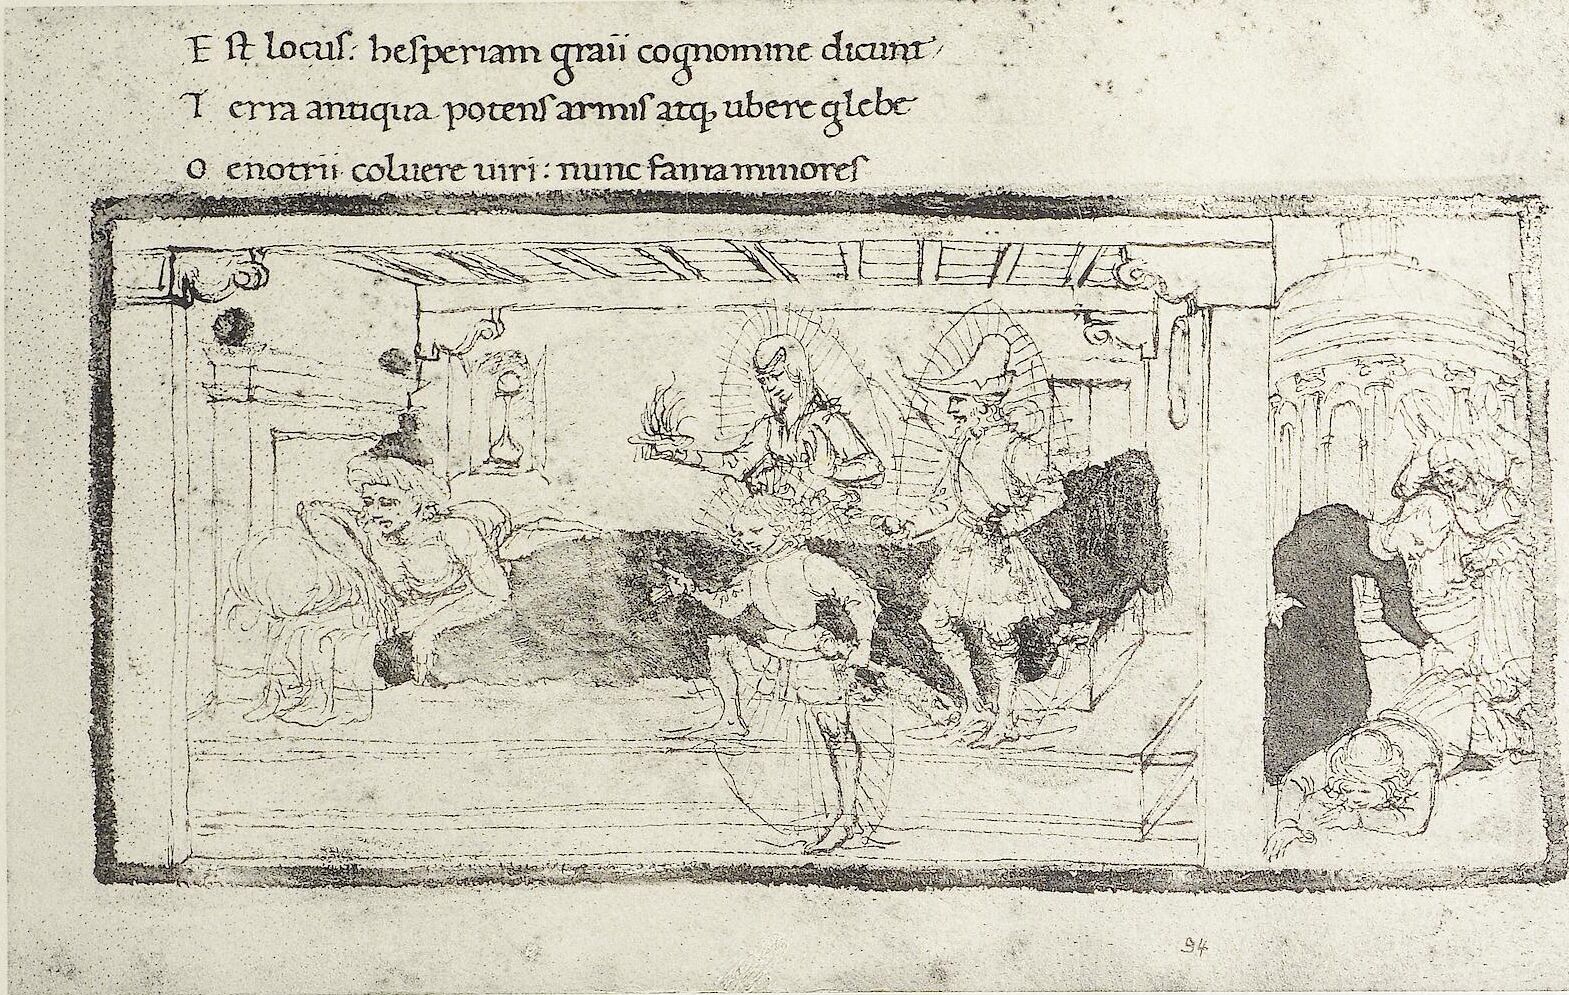 E st locuſ: heſperiam graii cognomine dicunt
T erra antiqua potenſ armiſ atq, ubere glebe
O enotrii coluere uiri: nunc fama minoreſ
94